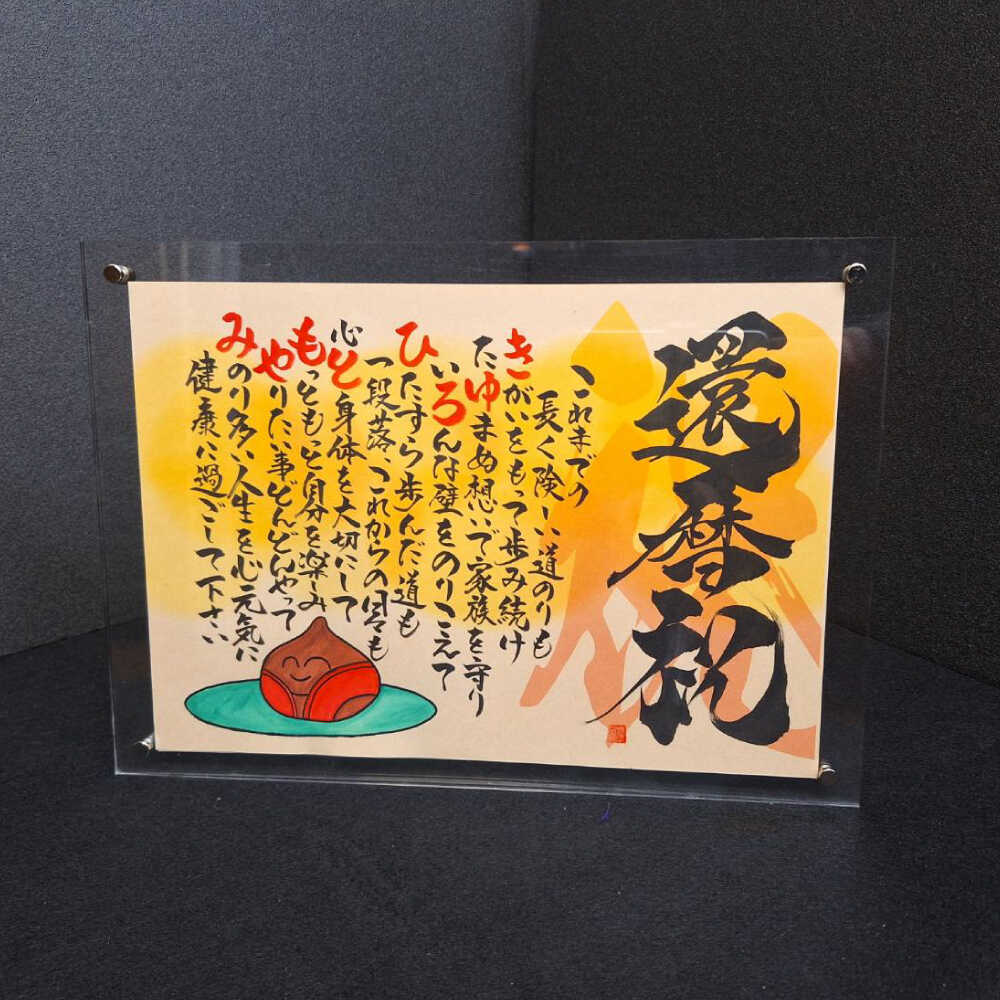 還暦祝
これまでの
長く険しい道のりも
きがいをもって歩み続け
たゆまぬ想いで家族を守り
いろんな壁をのりこえて
ひたすら歩んだ道も
一段落、これからの日々も
心と身体を大切にして
もっともっと自分を楽しみ
やりたい事どんどんやって
みのり多い人生を心元気に
健康に過ごして下さい